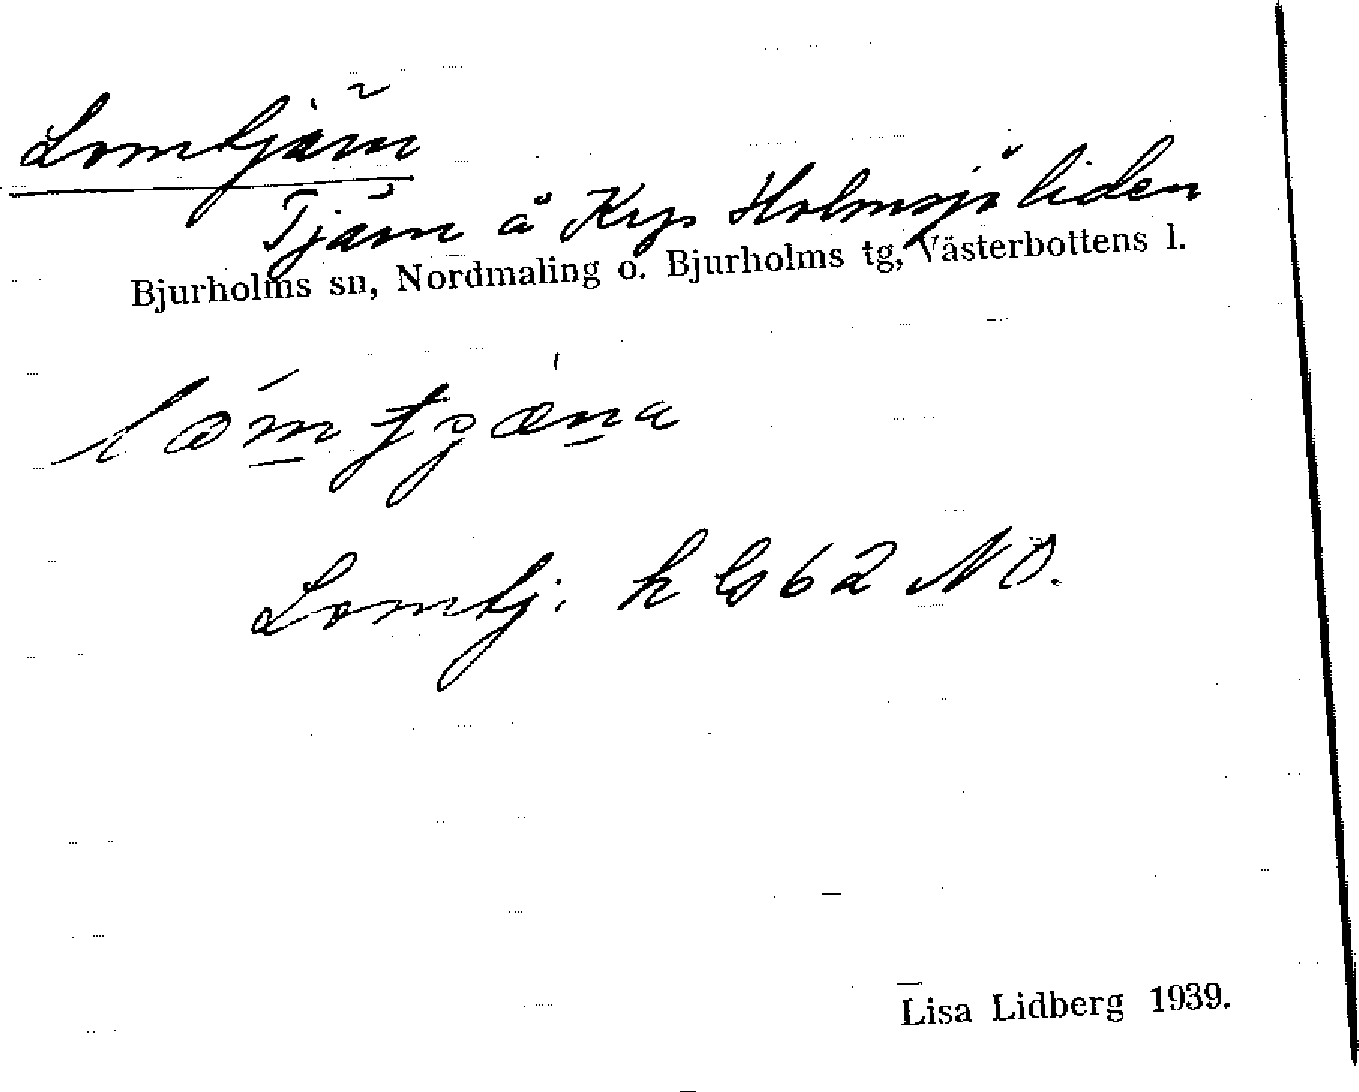 Lomtjärn
Tjärn å Krp Holmsjöliden
Bjurholms sn, Nordmaling o. Bjurholms tg, Västerbottens l.
Lomtj. k G62 NO.
Lisa Lidberg 1939.